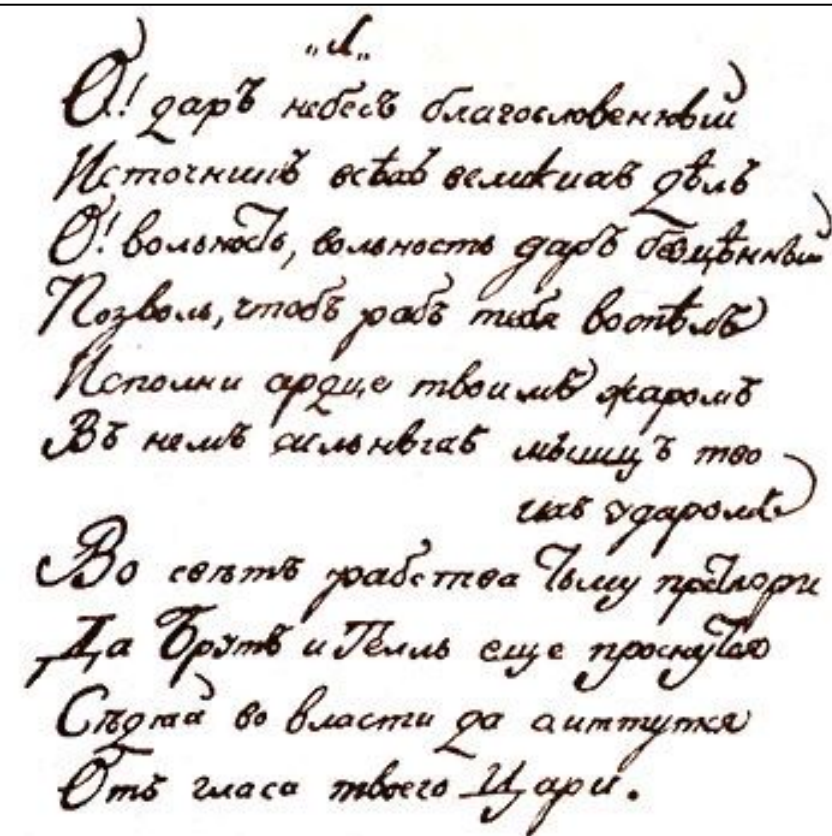 „1„
О! даръ небесъ благословенный
Источникъ всѣхъ великихъ дѣлъ
О! вольность, вольность даръ безцѣнный
Позволь, чтобъ рабъ тебя воспѣлъ
Исполни сердце твоимъ жаромъ
Въ немъ сильныхъ мышцъ тво
ихъ ударомъ
Во свѣтъ рабства тьму претвори
Да Брутъ и Телль еще проснутся
Сѣдяй во власти да смятутся
Отъ гласа твоего Цари.